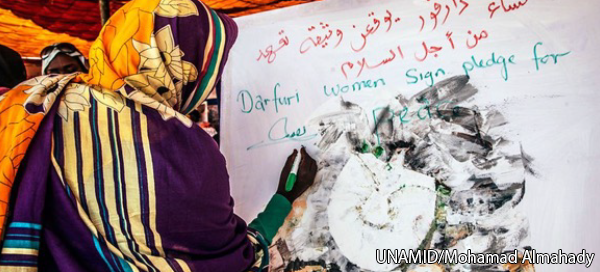 نساء دارفور يوقعن وثيقة تعهد
من أجل السلام
Darfuri women Sign pledge for
Peace
UNAMID/Mohamad Almahady